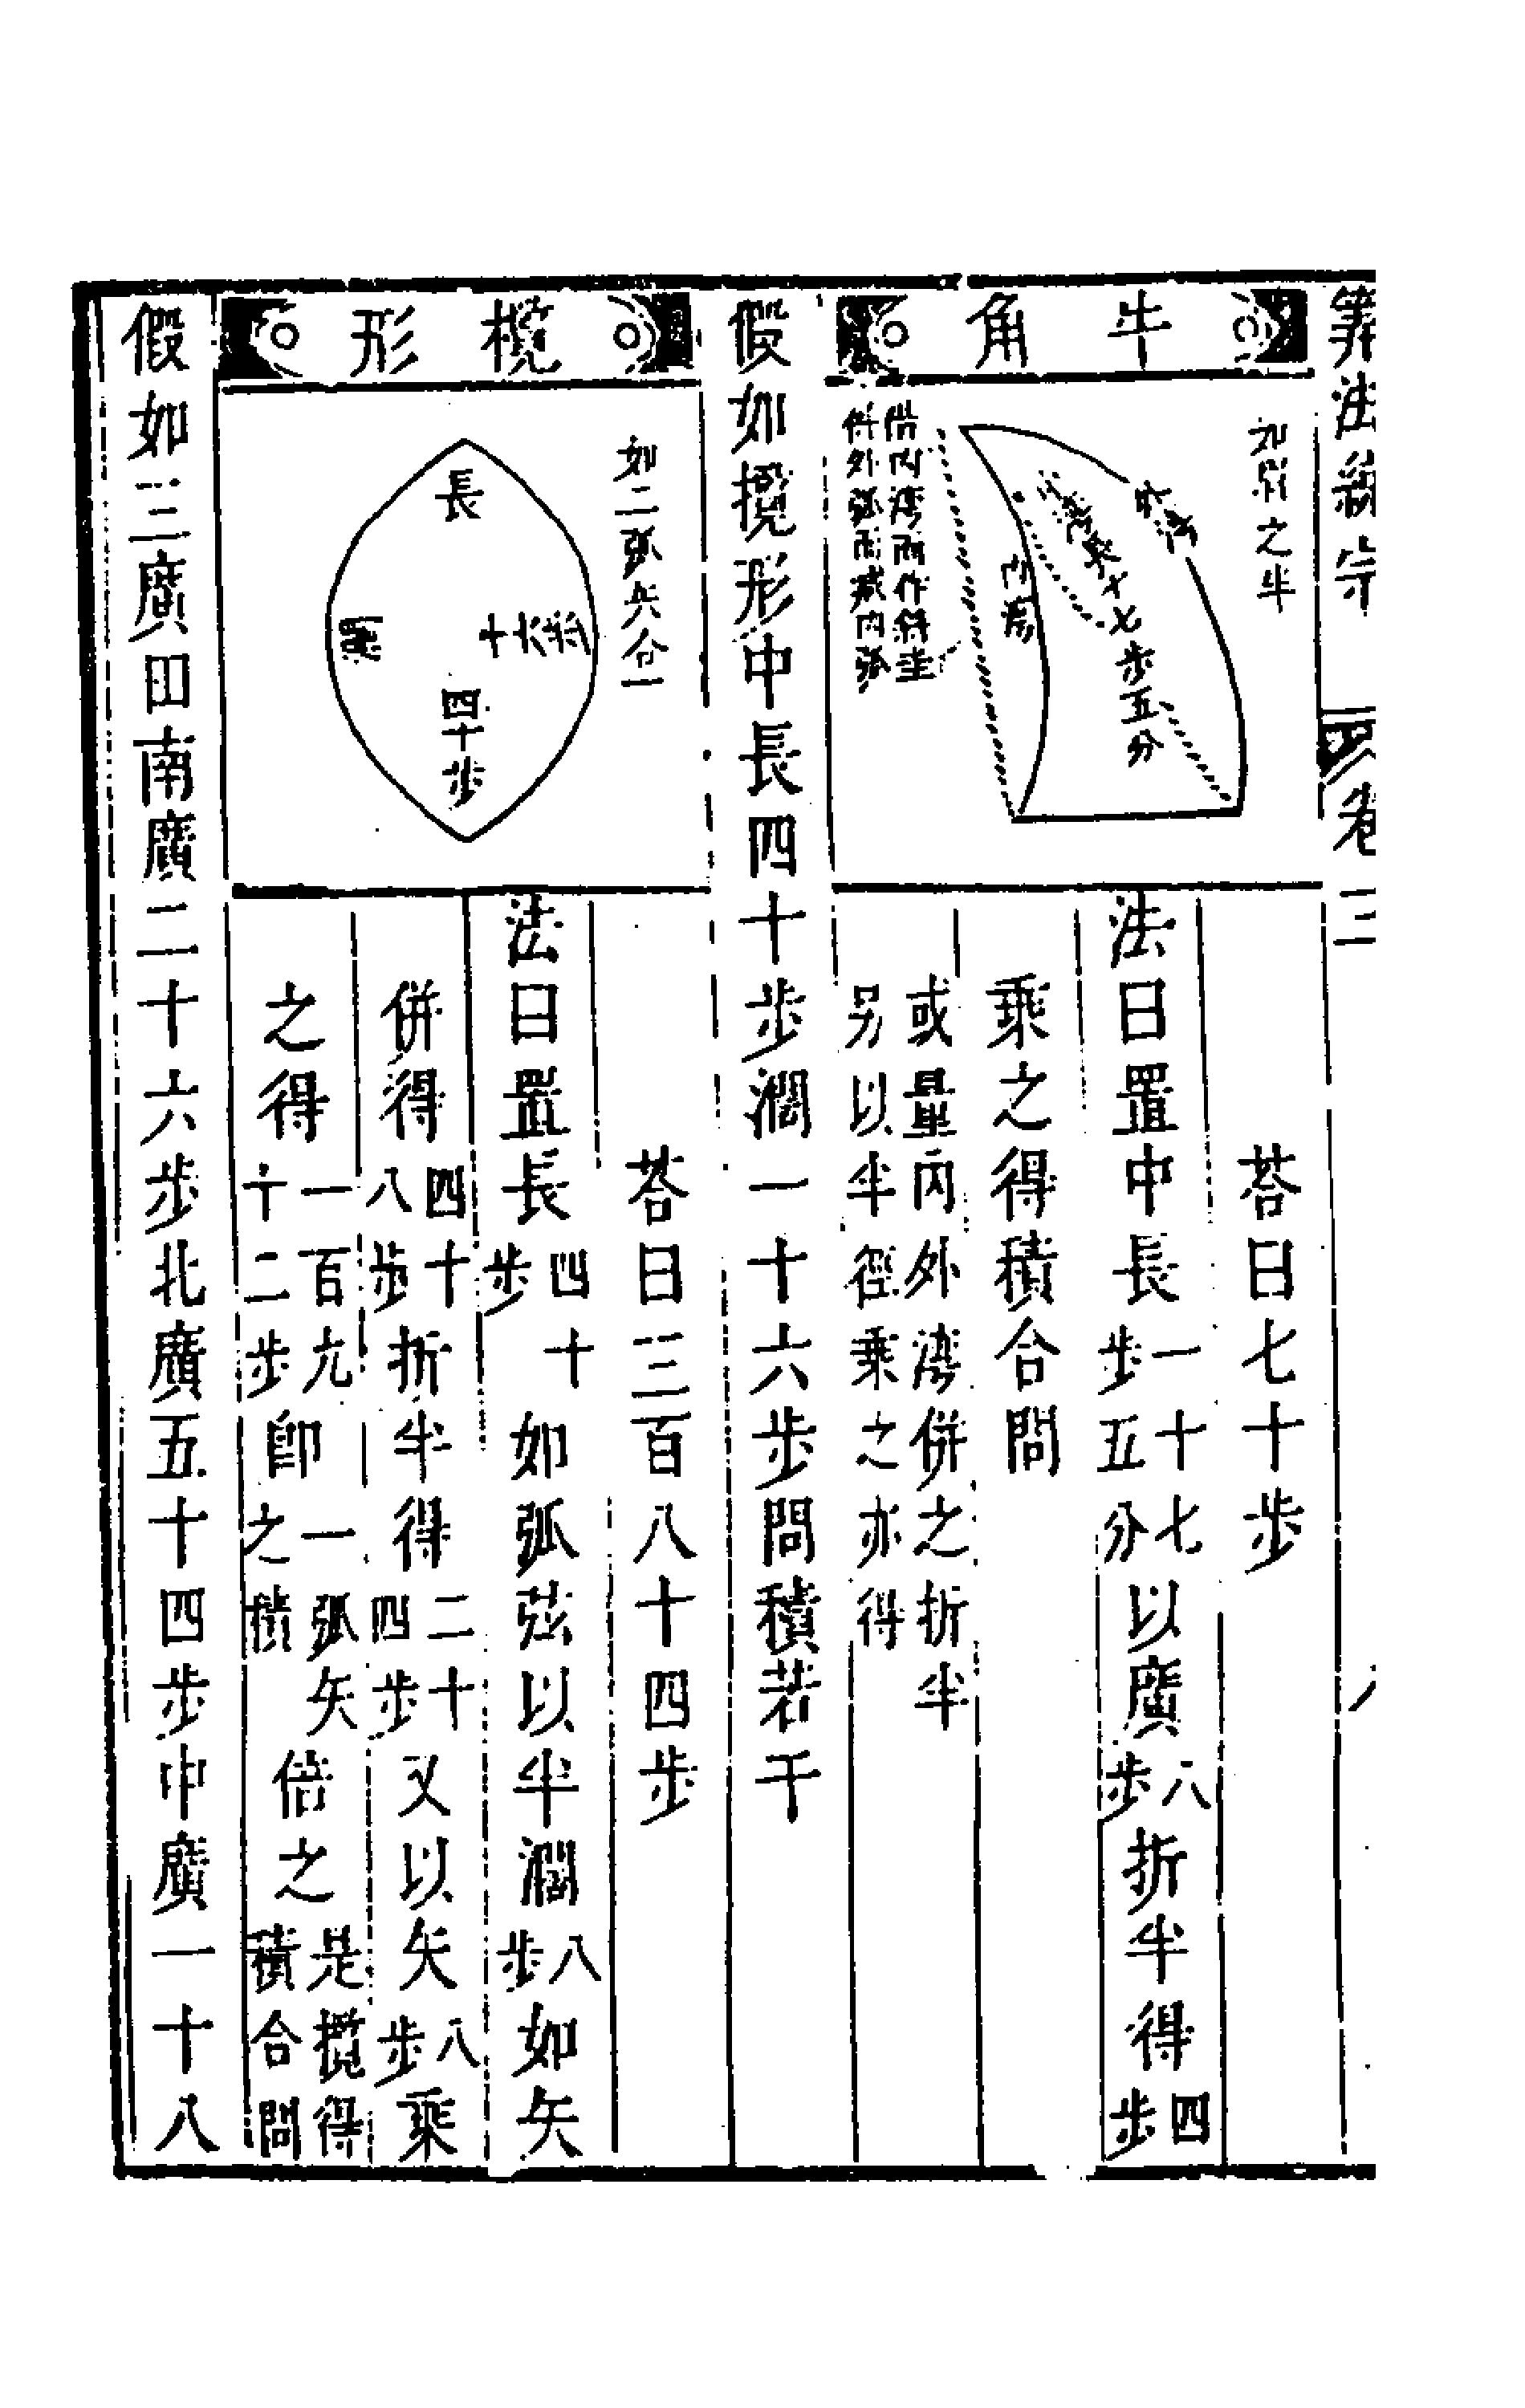 算法統宗 卷三
牛角
如弧之半
中長一十七步五分
借內湾而作斜坐
併外弧而減內弧
荅曰七十步
法曰置中長一十七步五分以廣八步折半得四步
乘之得積合問
或量內外湾併之折半
另以半徑乘之亦得
假如攬形中長四十步濶一十六步問積若干
欖形
如二弧矢合一
長四十步
荅曰三百八十四步
法曰置長四十步如弧弦以半濶八步如矢
併得四十八步折半得二十四步又以矢八步乘
之得一百九十二步即一弧矢之積倍之是攬得積合問
假如三廣田南廣二十六步北廣五十四步中廣一十八